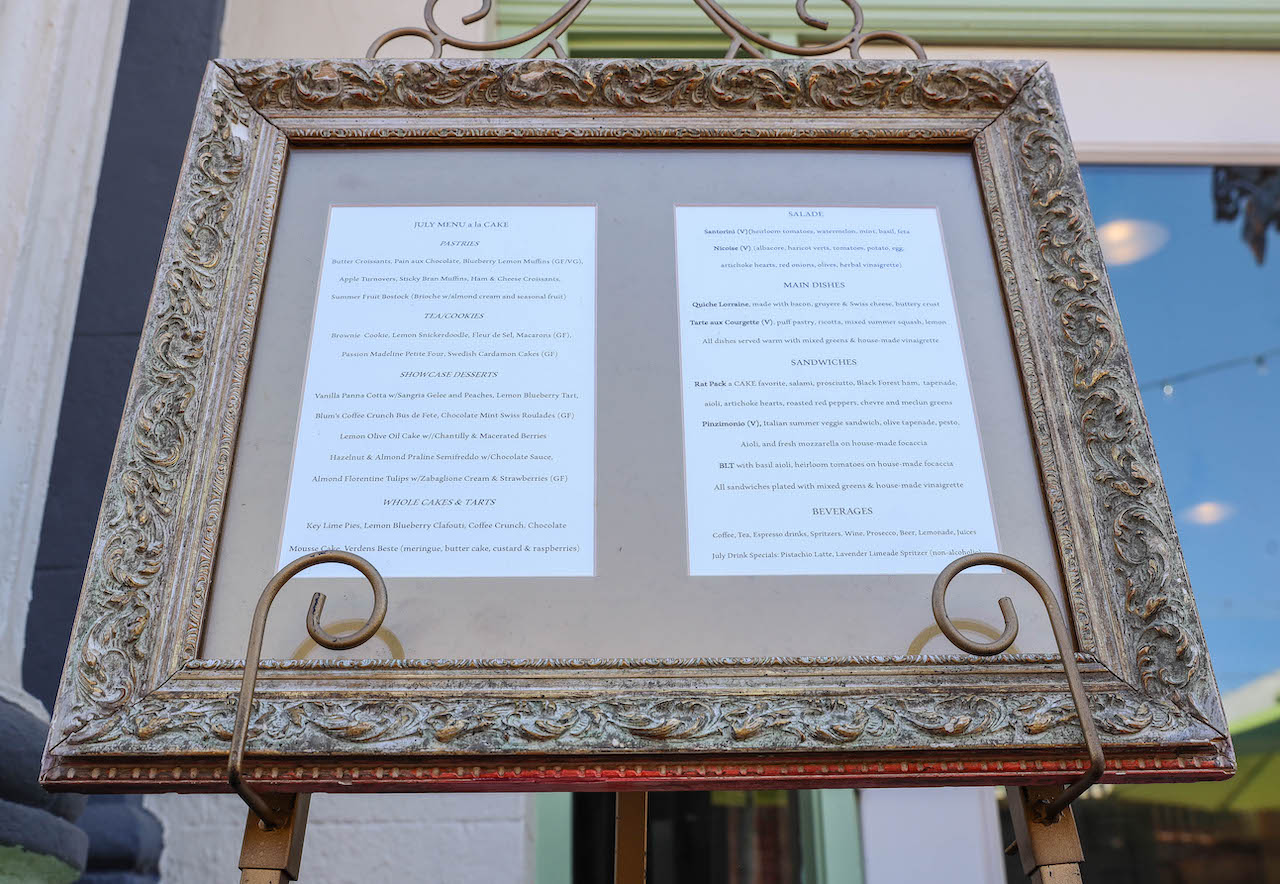 JULY MENU a la CAKE
PASTRIES
Butter Croissants, Pain aux Chocolate, Blueberry Lemon Muffins (GF/VG),
Apple Turnovers, Sticky Bran Muffins, Ham & Cheese Croissants,
Summer Fruit Bostock (Brioche w/almond cream and seasonal fruit)
TEA/COOKIES
Brownie Cookie, Lemon Snickerdoodle, Fleur de Sel, Macarons (GF),
Passion Madeline Petite Four, Swedish Cardamon Cakes (GF)
SHOWCASE DESSERTS
Vanilla Panna Cotta w/Sangria Gelee and Peaches, Lemon Blueberry Tart,
Blum's Coffee Crunch Bus de Fete, Chocolate Mint Swiss Roulades (GF)
Lemon Olive Oil Cake w//Chantilly & Macerated Berries
Hazelnut & Almond Praline Semifreddo w/Chocolate Sauce,
Almond Florentine Tulips w/Zabaglione Cream & Strawberries (GF)
WHOLE CAKES & TARTS
Key Lime Pies, Lemon Blueberry Clafouti, Coffee Crunch, Chocolate
Mousse Cake, Verdens Beste (meringue, butter cake, custard & raspberries)
SALADE
Santorini (V)(heirloom tomatoes, watermelon, mint, basil, feta
Nicoise (V) (albacore, haricot verts, tomatoes, potato, egg,
artichoke hearts, red onions, olives, herbal vinaigrette)
MAIN DISHES
Quiche Lorraine, made with bacon, gruyere & Swiss cheese, buttery crust
Tarte aux Courgette (V): puff pastry, ricotta, mixed summer squash, lemon
All dishes served warm with mixed greens & house-made vinaigrette
SANDWICHES
Rat Pack a CAKE favorite, salami, prosciutto, Black Forest ham, tapenade,
aioli, artichoke hearts, roasted red peppers, chevre and mesclun greens
Pinzimonio (V), Italian summer veggie sandwich, olive tapenade, pesto,
Aioli, and fresh mozzarella on house-made focaccia
BLT with basil aioli, heirloom tomatoes on house-made focaccia
All sandwiches plated with mixed greens & house-made vinaigrette
BEVERAGES
Coffee, Tea, Espresso drinks, Spritzers, Wine, Prosecco, Beer, Lemonade, Juices
July Drink Specials: Pistachio Latte, Lavender Limeade Spritzer (non-alcoholic)